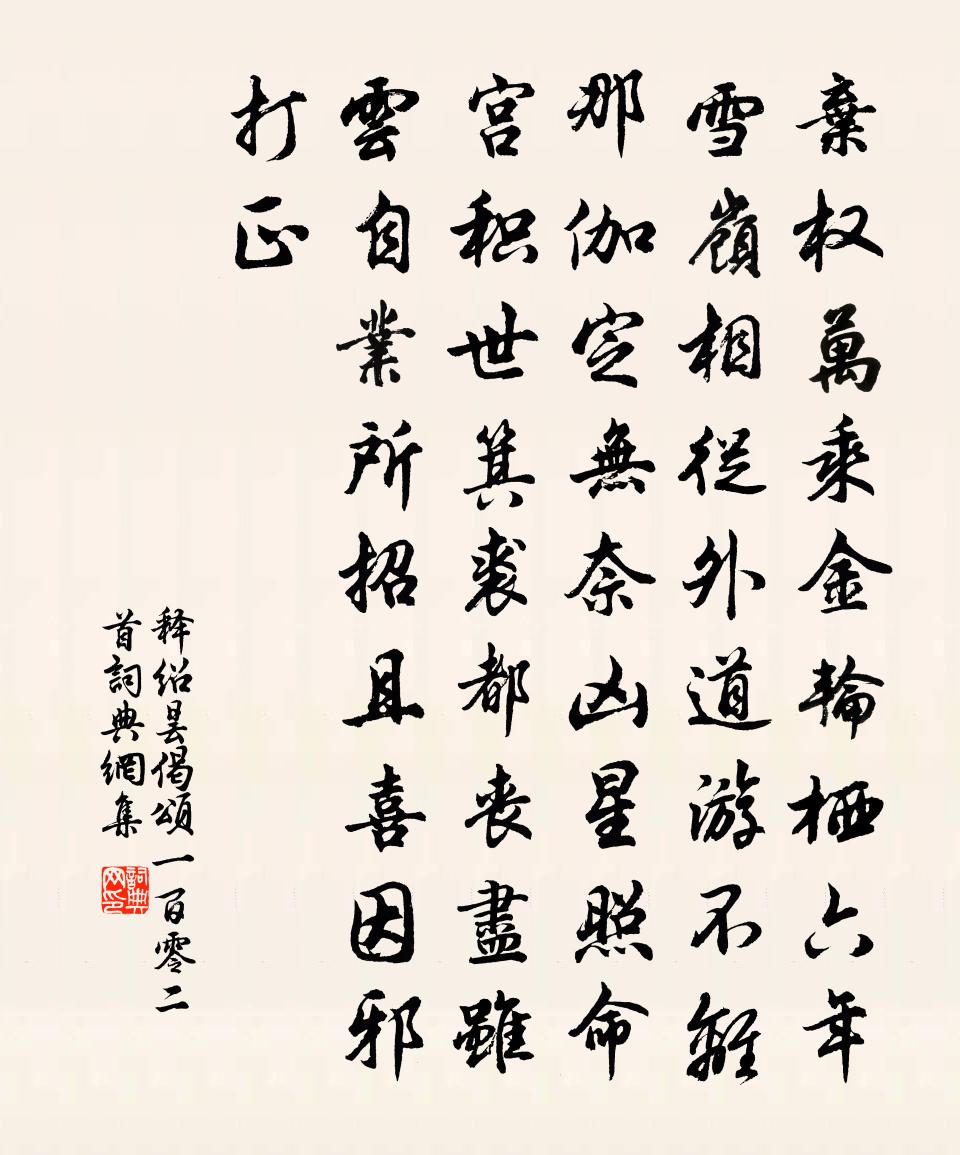 棄权萬乘金輪栖六年
雪嶺相從外道游不離
那伽定無奈凶星照命
宫积世箕裘都丧盡雖
雲自業所招且喜因邪
打正
释绍昙偈頌一百零二
首詞典網集
詞典网印